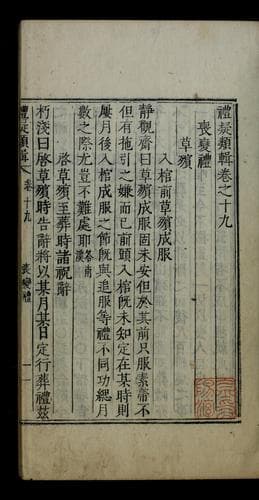 禮疑類輯卷之十九
喪變禮
草殯
入棺前草殯成服
靜觀齋曰草殯成服固未安但於其前只服素帶不
但有拖引之嫌而已前頭入棺旣未知定在某時則
屢月後入棺成服之節旣與追服等禮不同功緦月
數之際尤豈不難處耶答南溪
啓草殯至葬時諸祝辭
朽淺曰啓草殯時告辭將以某月某日定行葬禮茲
禮疑類輯 卷十九 喪變禮 一